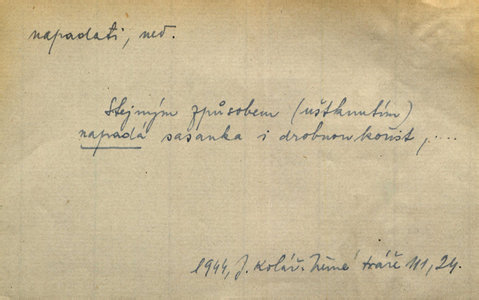 napadati, ned.
Stejným způsobem (uštknutím)
napadá sasanka i drobnou kořist, ....
1944, J. Kolář: Němé tváře III, 24.